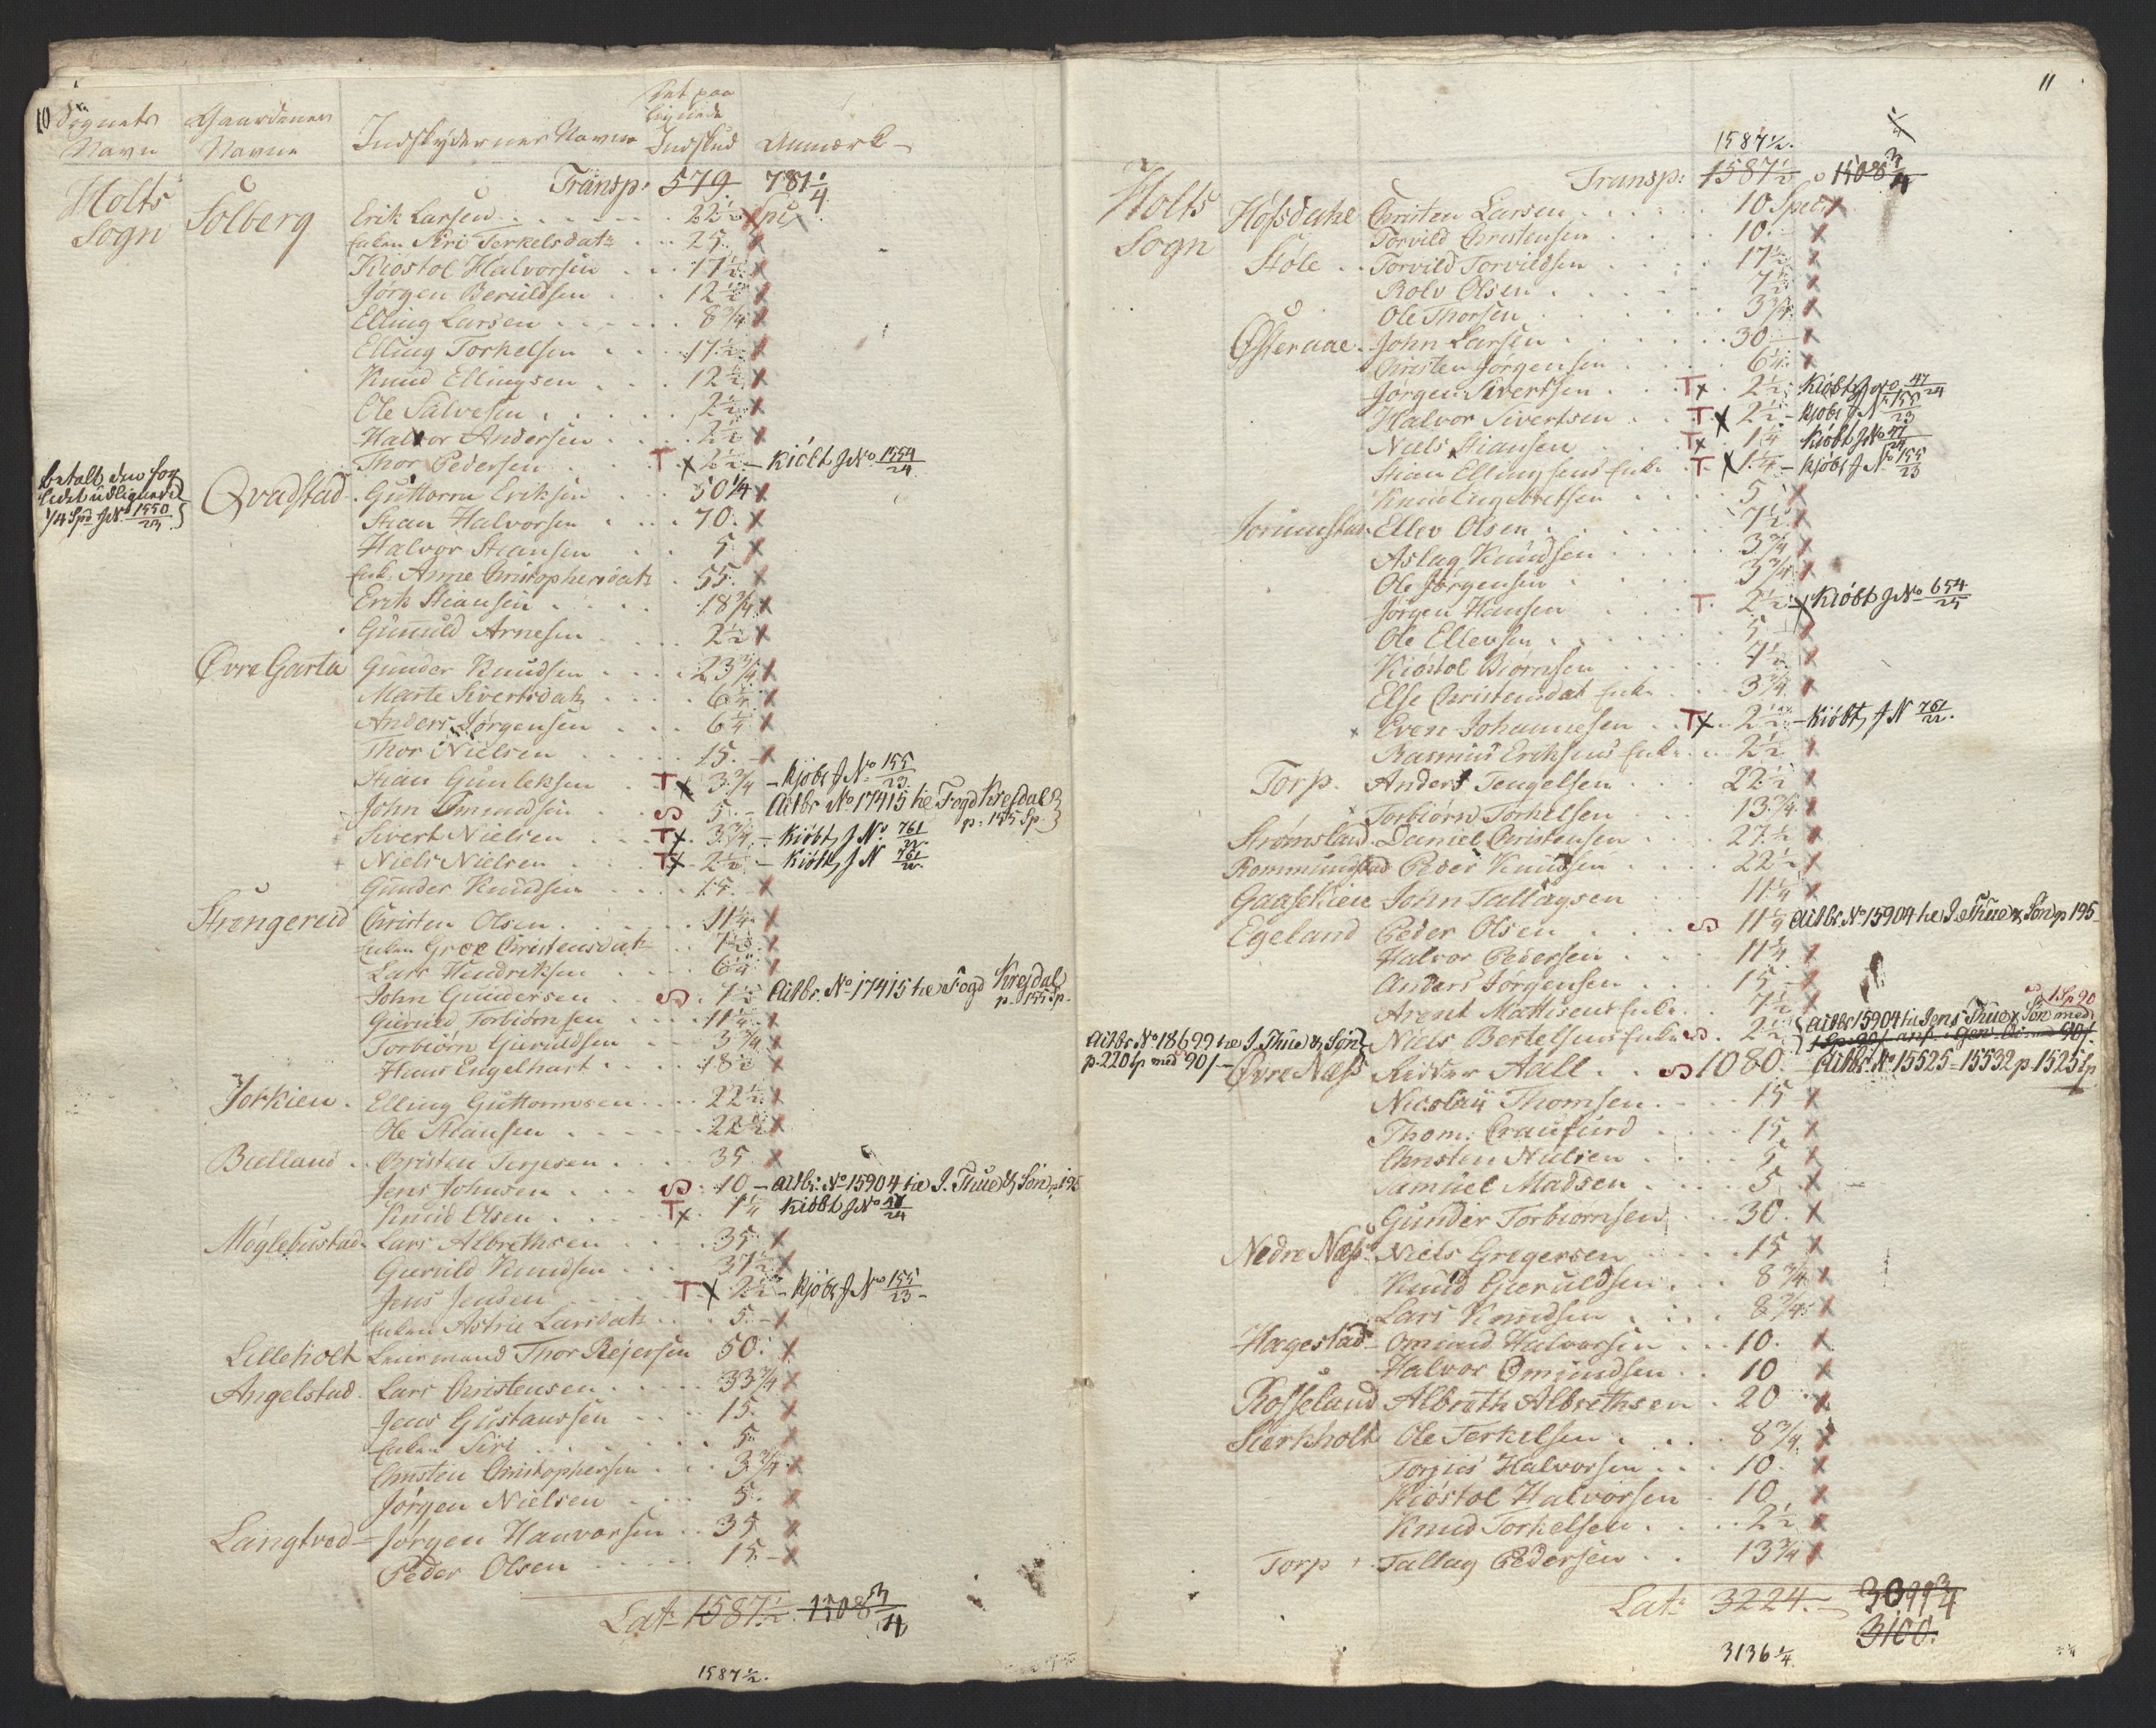 10
Sognets Navn
Gaardenes Navne
Indskydernes Navne
Det paa lignede Indskud
Anmærk
Transp: 579. 781 1/4
Holts Sogn
Solberg Erik Larsen 22 1/2 x
Enken Siri Terkelsdatr 25. x
Kiøstol Halvorsen 17 1/2 x
Jørgen Beruldsen 12 1/2 x
Elling Larsen 8 3/4 x
Elling Torkelsen 17 1/2 x
Knud Ellingsen 12 1/2 x
Ole Salvesen 2 1/2 x
Halvor Andersen 2 1/2 x
Thor Pedersen T x 2 1/2 - Kiöbt J No 1554/24
betalt den for
lidet udlignede
1/4 Spd J No 1550/23
Qvastad Guttorm Eriksen 50 1/4 x
Stian Halvorsen 70. x
Halvor Stiansen 5. x
Enk. Anne Christophersdatr 55. x
Erik Stiansen 18 3/4 x
Gunuld Arnesen 2 1/2 x
Øvre Garta Gunder Knudsen 23 3/4 x
Marte Sivertsdatr 6 1/4 x
Anders Jørgensen 6 1/4 x
Thor Nielsen 15. x
Stian Gunleksen T x 3 3/4 - kjöbt J No 155/23
John Omundsen S 5. - Actbr No 17415 til Fogd Krefdal
p. 155 Sp.
Sivert Nielsen T x 3 3/4 - Kiöbt, J No 761/22
Niels Nielsen T x 2 1/2 - Kiöbt, J N 761/22
Gunder Knudsen 15. x
Strengereid Christen Olsen 11 1/4 x
Enken Groe Christensdatr 7 1/2 x
Lars Hendriksen 6 1/4 x
John Gundersen S 7 1/2 Actbr. No 17415 til Fogd Krefdal
p. 155 Sp.
Gieruld Torbiørnsen 11 1/4 x
Torbiørn Gieruldsen 3 3/4 x
Hans Engelhart 18 1/2 x
Jorkien Elling Guttormsen 22 1/2 x
Ole Stiansen 22 1/2 x
Bielland Christen Terjesen 35 x
Jens Johnsen S 10 - Actbr. No 15904 til J. Thue & Søn p. 195
Knud Olsen T x 1 1/4 Kiöbt J No 47/24
Møglebustad Lars Albrethsen 35 x
Gieruld Knudsen 37 1/2 x
Jens Jensen T x 2 1/2 - kjöbt J No 155/23 -
Enken Astrie Larsdatr 5. x
Lilleholt Lensmand Thor Rejersen 50. x
Angelstad Lars Christensen 33 3/4 x
Jens Gustavssen 15. x
Enken Siri 5. x
Christen Christophersen 3 3/4 x
Jørgen Nielsen 5. x
Langtved Jørgen Haavorsen 35 x
Peder Olsen 15. x
Lat: 1587 1/2. 1508 3/4
1587 1/2.
11
1587 1/2.
Transp: 1587 1/2 1508 3/4
Holts Sogn
Hofsdahl Christen Larsen 10 Spec x
Torvild Christensen 10. x
Støle Torvild Torvildsen 17 1/2 x
Rolv Olsen 7 1/2 x
Ole Thorsen 3 3/4 x
Østeraae John Larsen 30. x
Christen Jørgensen 6 1/4 x
Jørgen Sivertsen T x 2 1/2 Kiöbt J No 47/24
Halvor Sivertsen T x 2 1/2 - kjöbt J No 155/23
Niels Stiansen T x 1 1/4 Kiöbt J No 47/24
Stian Ellingsens Enke T x 1 1/4 - kjöbt J No 155/23
Knud Engebretsen 5 x
Jorunstad Ellev Olsen 7 1/2 x
Aslag Knudsen 3 3/4 x
Ole Jørgensen 3 3/4 x
Jørgen Hansen T. 2 1/2 x Kiöbt J No 654/25
Ole Ellevsen 5 x
Kiöstol Biörnsen 7 1/2 x
Else Christensdat Enke 3 3/4 x
Even Johannesen T x 2 1/2 - Kiöbt, J N 761/22.
Rasmus Eriksens Enke 2 1/2 x
Torp Anders Tengelsen 22 1/2 x
Torbiørn Torkelsen 13 3/4 x
Strømsland Daniel Christensen 27 1/2 x
Rommundstad Peder Knudsen 22 1/2 x
Gaaskien John Tallagsen 11 1/4 x
Egeland Peder Olsen S 11 1/4 Actbr. No 15904 til J. Thue & Søn p 195
Halvor Pedersen 11 1/4 x
Anders Jørgensen 15 x
Arent Mattisens Enke 7 1/2 x
1 Sp 90
Niels Bertelsens Enke S. 2 1/2 Actbr 15904 til Jens Thue & Søn med
Actbr No 18699 til J. Thue & Søn
p. 220 Sp med 90/ -
Øvre Næss Reider Aall S 1080. Actbr. No 15525 - 15532 p 1525 Sp
Nicolay Thomsen 15 x
Thom: Craufurd 15 x
Christen Nielsen 5 x
Samuel Madsen 5 x
Gunder Torbiørnsen 30. x
Nedre Næss Niels Gregersen 15 x
Knud Gieruldsen 8 3/4 x
Lars Knudsen 8 3/4 x
Hagestad Omund Halvorsen 10. x
Halvor Omundsen 10 x
Rosseland Albreth Albrethsen 20 x
Sierkholt Ole Terkelsen 8 3/4 x
Torjus Halvorsen 10. x
Kiöstol Halvorsen 10 x
Knud Torkelsen 2 1/2 x
Torp Tallag Pedersen 13 3/4 x
Lat: 3224. 3099 3/4
3100.
3136 1/4